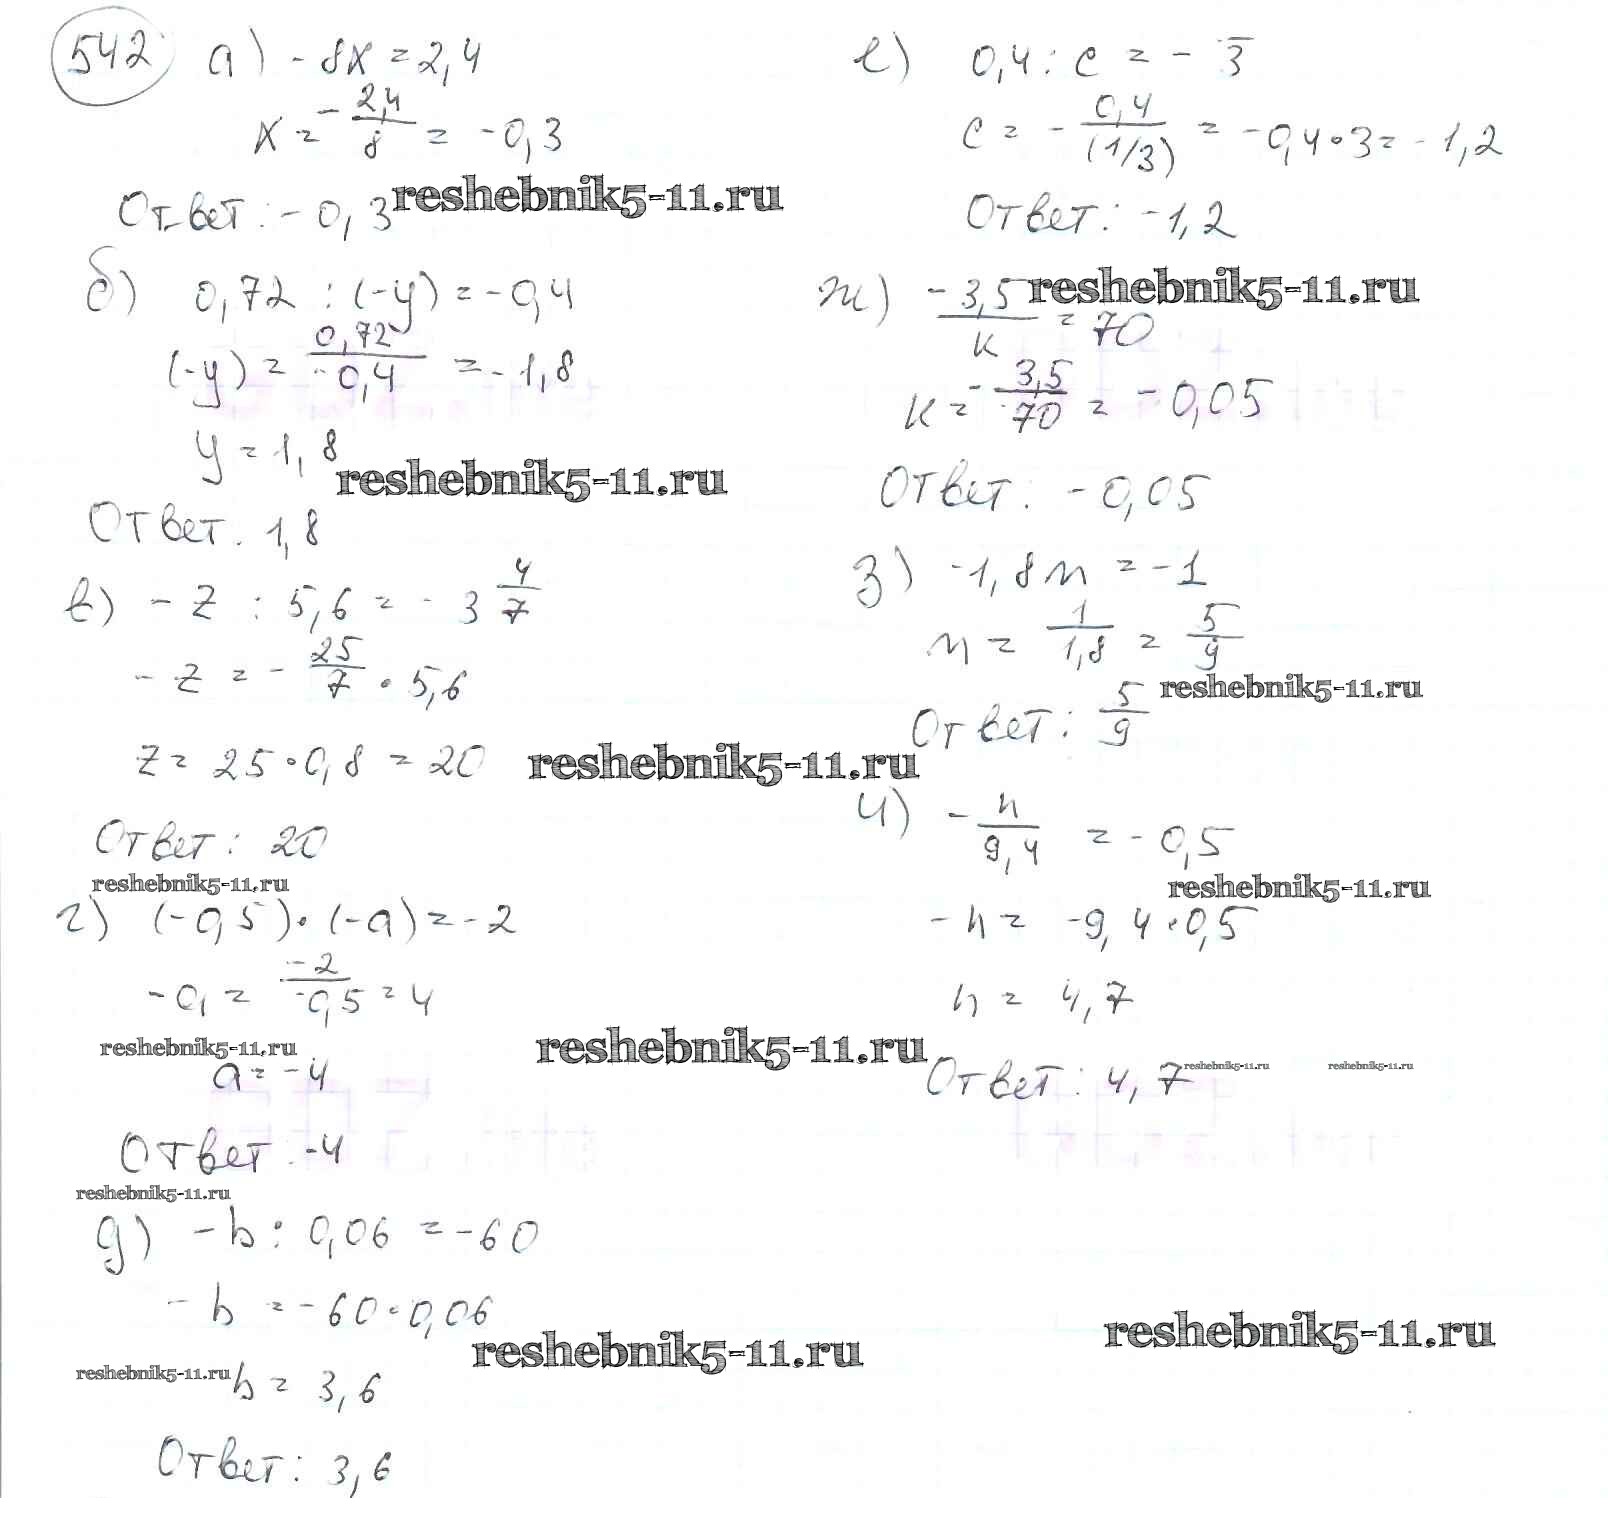 542 а) - 8x = 2,4
x = - 2,4/8 = -0,3
Ответ: - 0,3
reshebnik5-11.ru
б) 0,72 : (-y) = -0,4
(-y) = 0,72/-0,4 = -1,8
y = 1,8
reshebnik5-11.ru
Ответ. 1,8
в) - z : 5,6 = - 3 4/7
- z = - 25/7 · 5,6
z = 25 · 0,8 = 20
reshebnik5-11.ru
Ответ: 20
reshebnik5-11.ru
г) (-0,5) · (-a) = -2
-a = -2/-0,5 = 4
reshebnik5-11.ru
a = -4
reshebnik5-11.ru
Ответ: -4
reshebnik5-11.ru
д) -b : 0,06 = -60
- b = -60 · 0,06
reshebnik5-11.ru
reshebnik5-11.ru
b = 3,6
Ответ: 3,6
е) 0,4 : c = - 3
c = - 0,4/(1/3) = -0,4 · 3 = -1,2
Ответ: -1,2
reshebnik5-11.ru
ж) -3,5/k = 70
k = - 3,5/70 = -0,05
Ответ: -0,05
з) -1,8m = -1
m = 1/1,8 = 5/9
reshebnik5-11.ru
Ответ: 5/9
и) - n/9,4 = -0,5
reshebnik5-11.ru
-n = -9,4 · 0,5
n = 4,7
Ответ: 4,7
reshebnik5-11.ru reshebnik5-11.ru
reshebnik5-11.ru